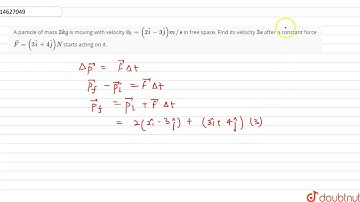 14627049
A particle of mass 2kg is moving with velocity v⃗₀ = (2î − 3ĵ) m/s in free space. Find its velocity 3s after a constant force
F⃗ = (3î + 4ĵ) N starts acting on it.
Δp⃗ = F⃗ Δt
p⃗f − p⃗i = F⃗ Δt
p⃗f = p⃗i + F⃗ Δt
= 2(2î − 3ĵ) + (3î + 4ĵ) (3)
doubtnut